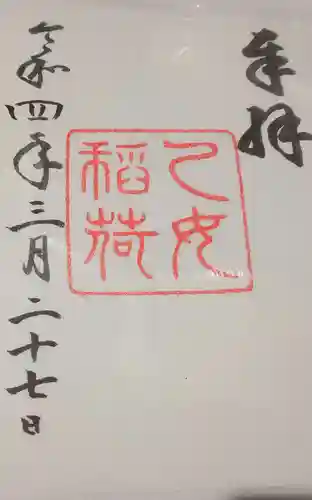 奉拝
乙女
稲荷
令和四年三月二十七日